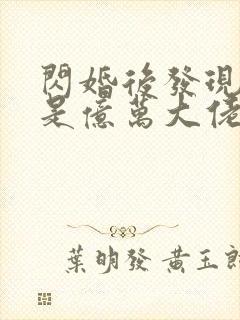 閃婚後發現
是億萬大佬
葉明發 黃玉郎